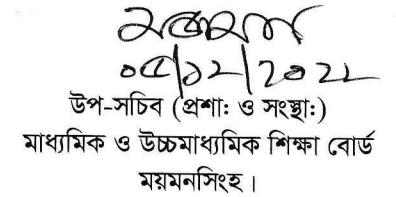 ০৫/১২/২০২২
উপ-সচিব (প্রশাঃ ও সংস্থাঃ)
মাধ্যমিক ও উচ্চমাধ্যমিক শিক্ষা বোর্ড
ময়মনসিংহ।